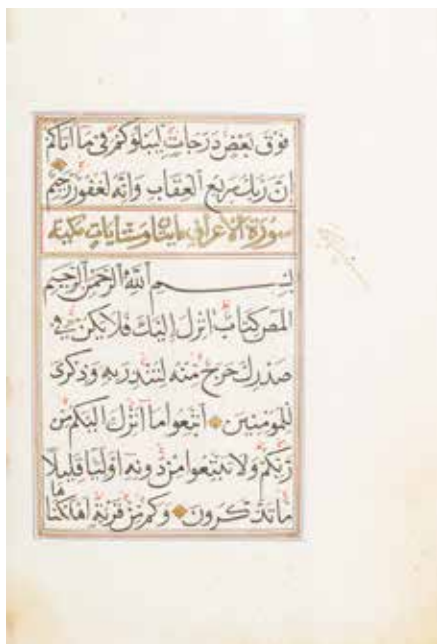 فوق بعض درجات ليبلوكم في ما اتاكم
ان ربك سريع العقاب وانه لغفور رحيم
سورة الاعراف مايتا وست ايات مكية
بسم الله الرحمن الرحيم
المص كتاب انزل اليك فلا يكن في
صدرك حرج منه لتنذر به وذكرى
للمومنين اتبعوا ما انزل اليكم من
ربكم ولا تتبعوا من دونه اوليا قليلا
ما تذكرون وكم من قرية اهلكناها